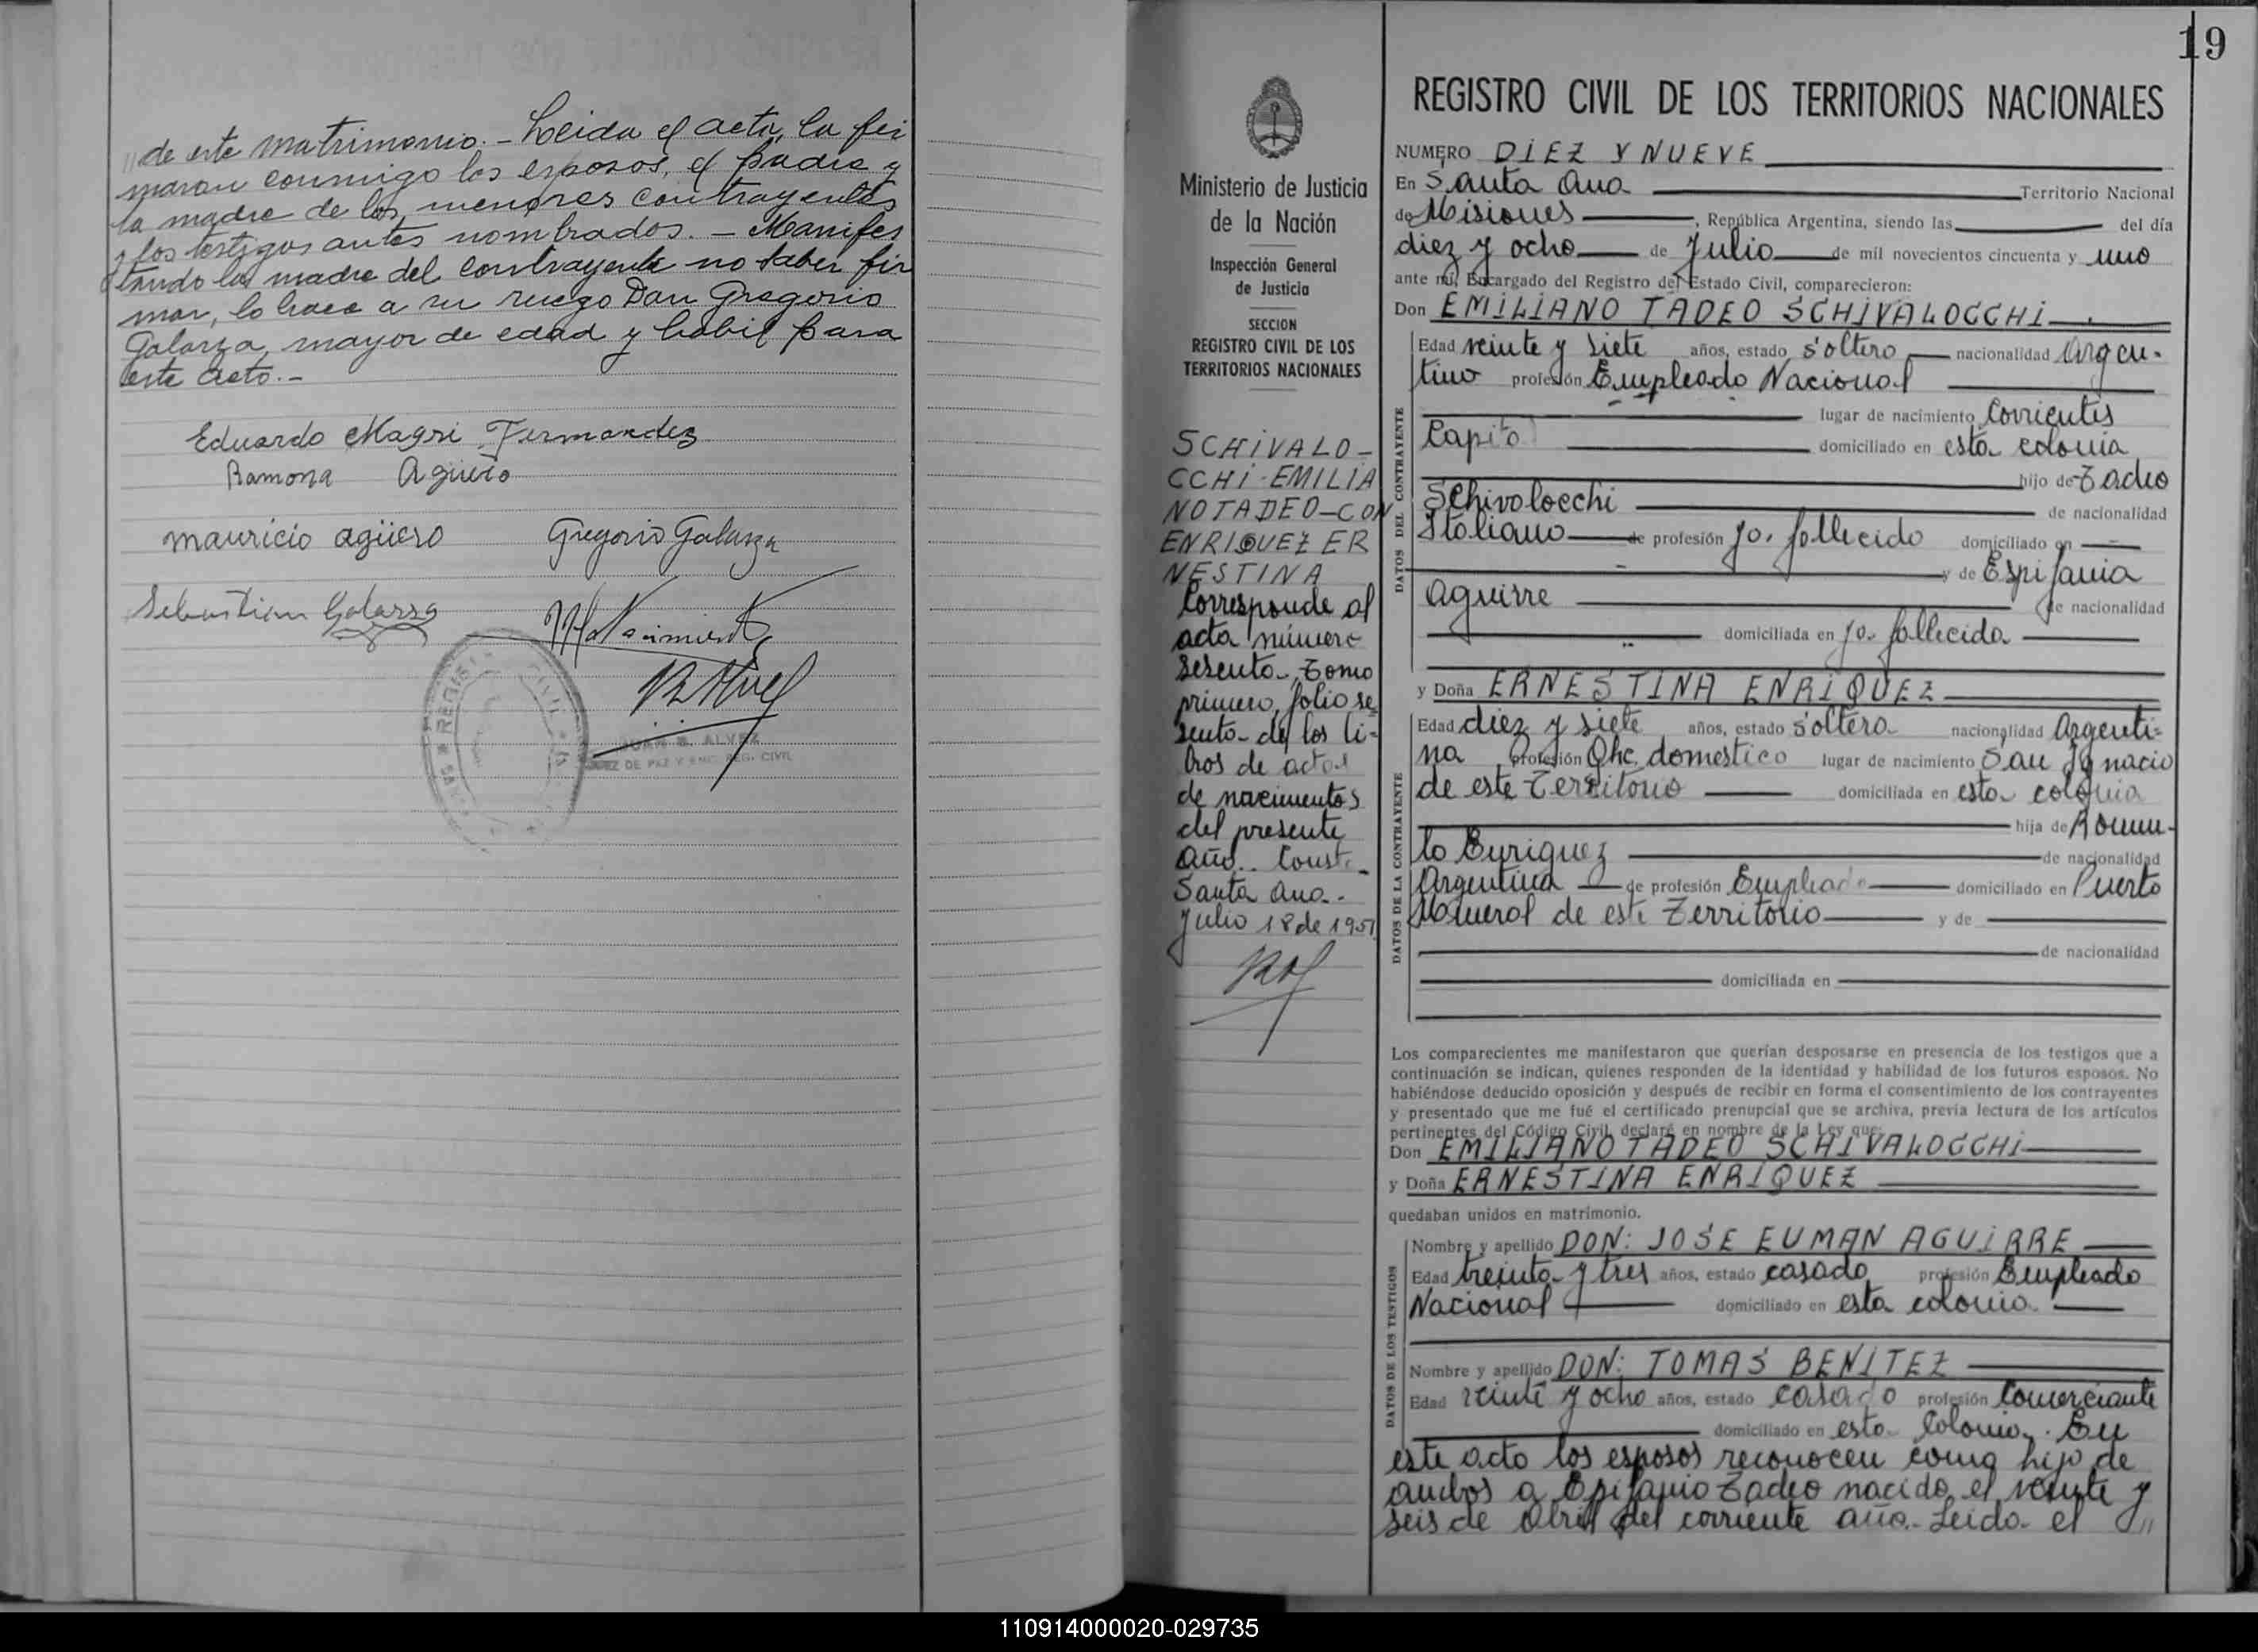 de este matrimonio.- Leida el acta, la fir
maron conmigo los esposos, el padre y
la madre de los menores contrayentes
y los testigos antes nombrados.- Manifes
tando la madre del contrayente no saber fir
mar, lo hace a su ruego Don Gregorio
Galarza, mayor de edad y habil para
este acto.-
Eduardo Magri Fernandez
Ramona Agüero
mauricio agüero Gregorio Galarza
Sebastian Galarza
JUAN B. ALVEZ
JUEZ DE PAZ Y ENC. REG. CIVIL
19
Ministerio de Justicia
de la Nación
Inspección General
de Justicia
SECCION
REGISTRO CIVIL DE LOS
TERRITORIOS NACIONALES
SCHIVALO-
CCHI-EMILIA
NO TADEO-CON
ENRIQUEZ ER
NESTINA
Corresponde al
acta número
sesenta, Tomo
primero, folio se
senta- de los li-
bros de actas
de nacimientos
del presente
año.. Conste-
Santa Ana.-
Julio 18 de 1951
REGISTRO CIVIL DE LOS TERRITORIOS NACIONALES
NUMERO DIEZ Y NUEVE
En Santa Ana Territorio Nacional
de Misiones, República Argentina, siendo las del día
diez y ocho de Julio de mil novecientos cincuenta y uno
ante mí, Encargado del Registro del Estado Civil, comparecieron:
Don EMILIANO TADEO SCHIVALOCCHI
DATOS DEL CONTRAYENTE
Edad veinte y siete años, estado soltero nacionalidad Argen-
tino profesión Empleado Nacional
lugar de nacimiento Corrientes
Capital domiciliado en esta colonia
hijo de Tadeo
Schivalocchi de nacionalidad
Italiano de profesión ja. fallecido domiciliado en
y de Espifania
Aguirre de nacionalidad
domiciliada en ja. fallecida
y Doña ERNESTINA ENRIQUEZ
DATOS DE LA CONTRAYENTE
Edad diez y siete años, estado soltera nacionalidad Argenti-
na profesión Qhc. domestico lugar de nacimiento San Ignacio
de este Territorio domiciliada en esta colonia
hija de Romu-
lo Enriquez de nacionalidad
Argentina de profesión Empleado domiciliado en Puerto
Mineral de este Territorio y de
de nacionalidad
domiciliada en
Los comparecientes me manifestaron que querían desposarse en presencia de los testigos que a
continuación se indican, quienes responden de la identidad y habilidad de los futuros esposos. No
habiéndose deducido oposición y después de recibir en forma el consentimiento de los contrayentes
y presentado que me fué el certificado prenupcial que se archiva, previa lectura de los artículos
pertinentes del Código Civil, declaré en nombre de la Ley que:
Don EMILIANO TADEO SCHIVALOCCHI
y Doña ERNESTINA ENRIQUEZ
quedaban unidos en matrimonio.
DATOS DE LOS TESTIGOS
Nombre y apellido DON: JOSE EUMAN AGUIRRE
Edad treinta y tres años, estado casado profesión Empleado
Nacional domiciliado en esta colonia
Nombre y apellido DON: TOMAS BENITEZ
Edad veinte y ocho años, estado casado profesión Comerciante
domiciliado en esta Colonia. En
este acto los esposos reconocen como hijo de
ambos a Epifanio Tadeo nacido el veinte y
seis de Abril del corriente año.- Leida el //
110914000020-029735